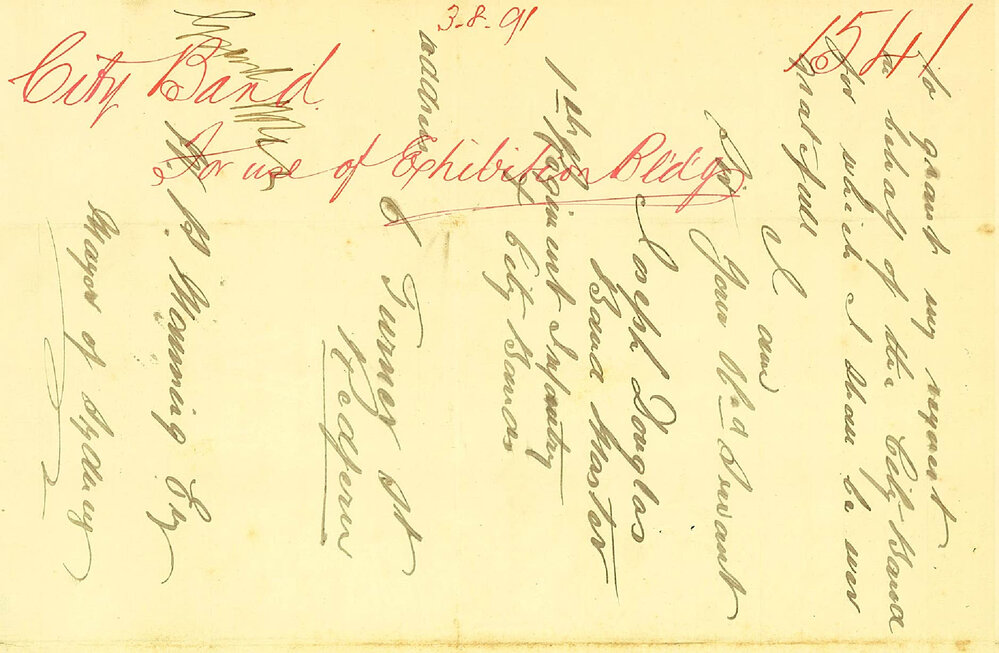 3-8-91
1541
City Band
For use of Exhibition Bldg
to grant my request
on behalf of the City Band
for which I shall be ever
gratefull
I am
Sir
Your Obd Servant
Joseph Douglas
Band Master
1st Regiment Infantry
& City Bands
address
6 Turner St
Redfern
W. P. Manning Esq
Mayor of Sydney